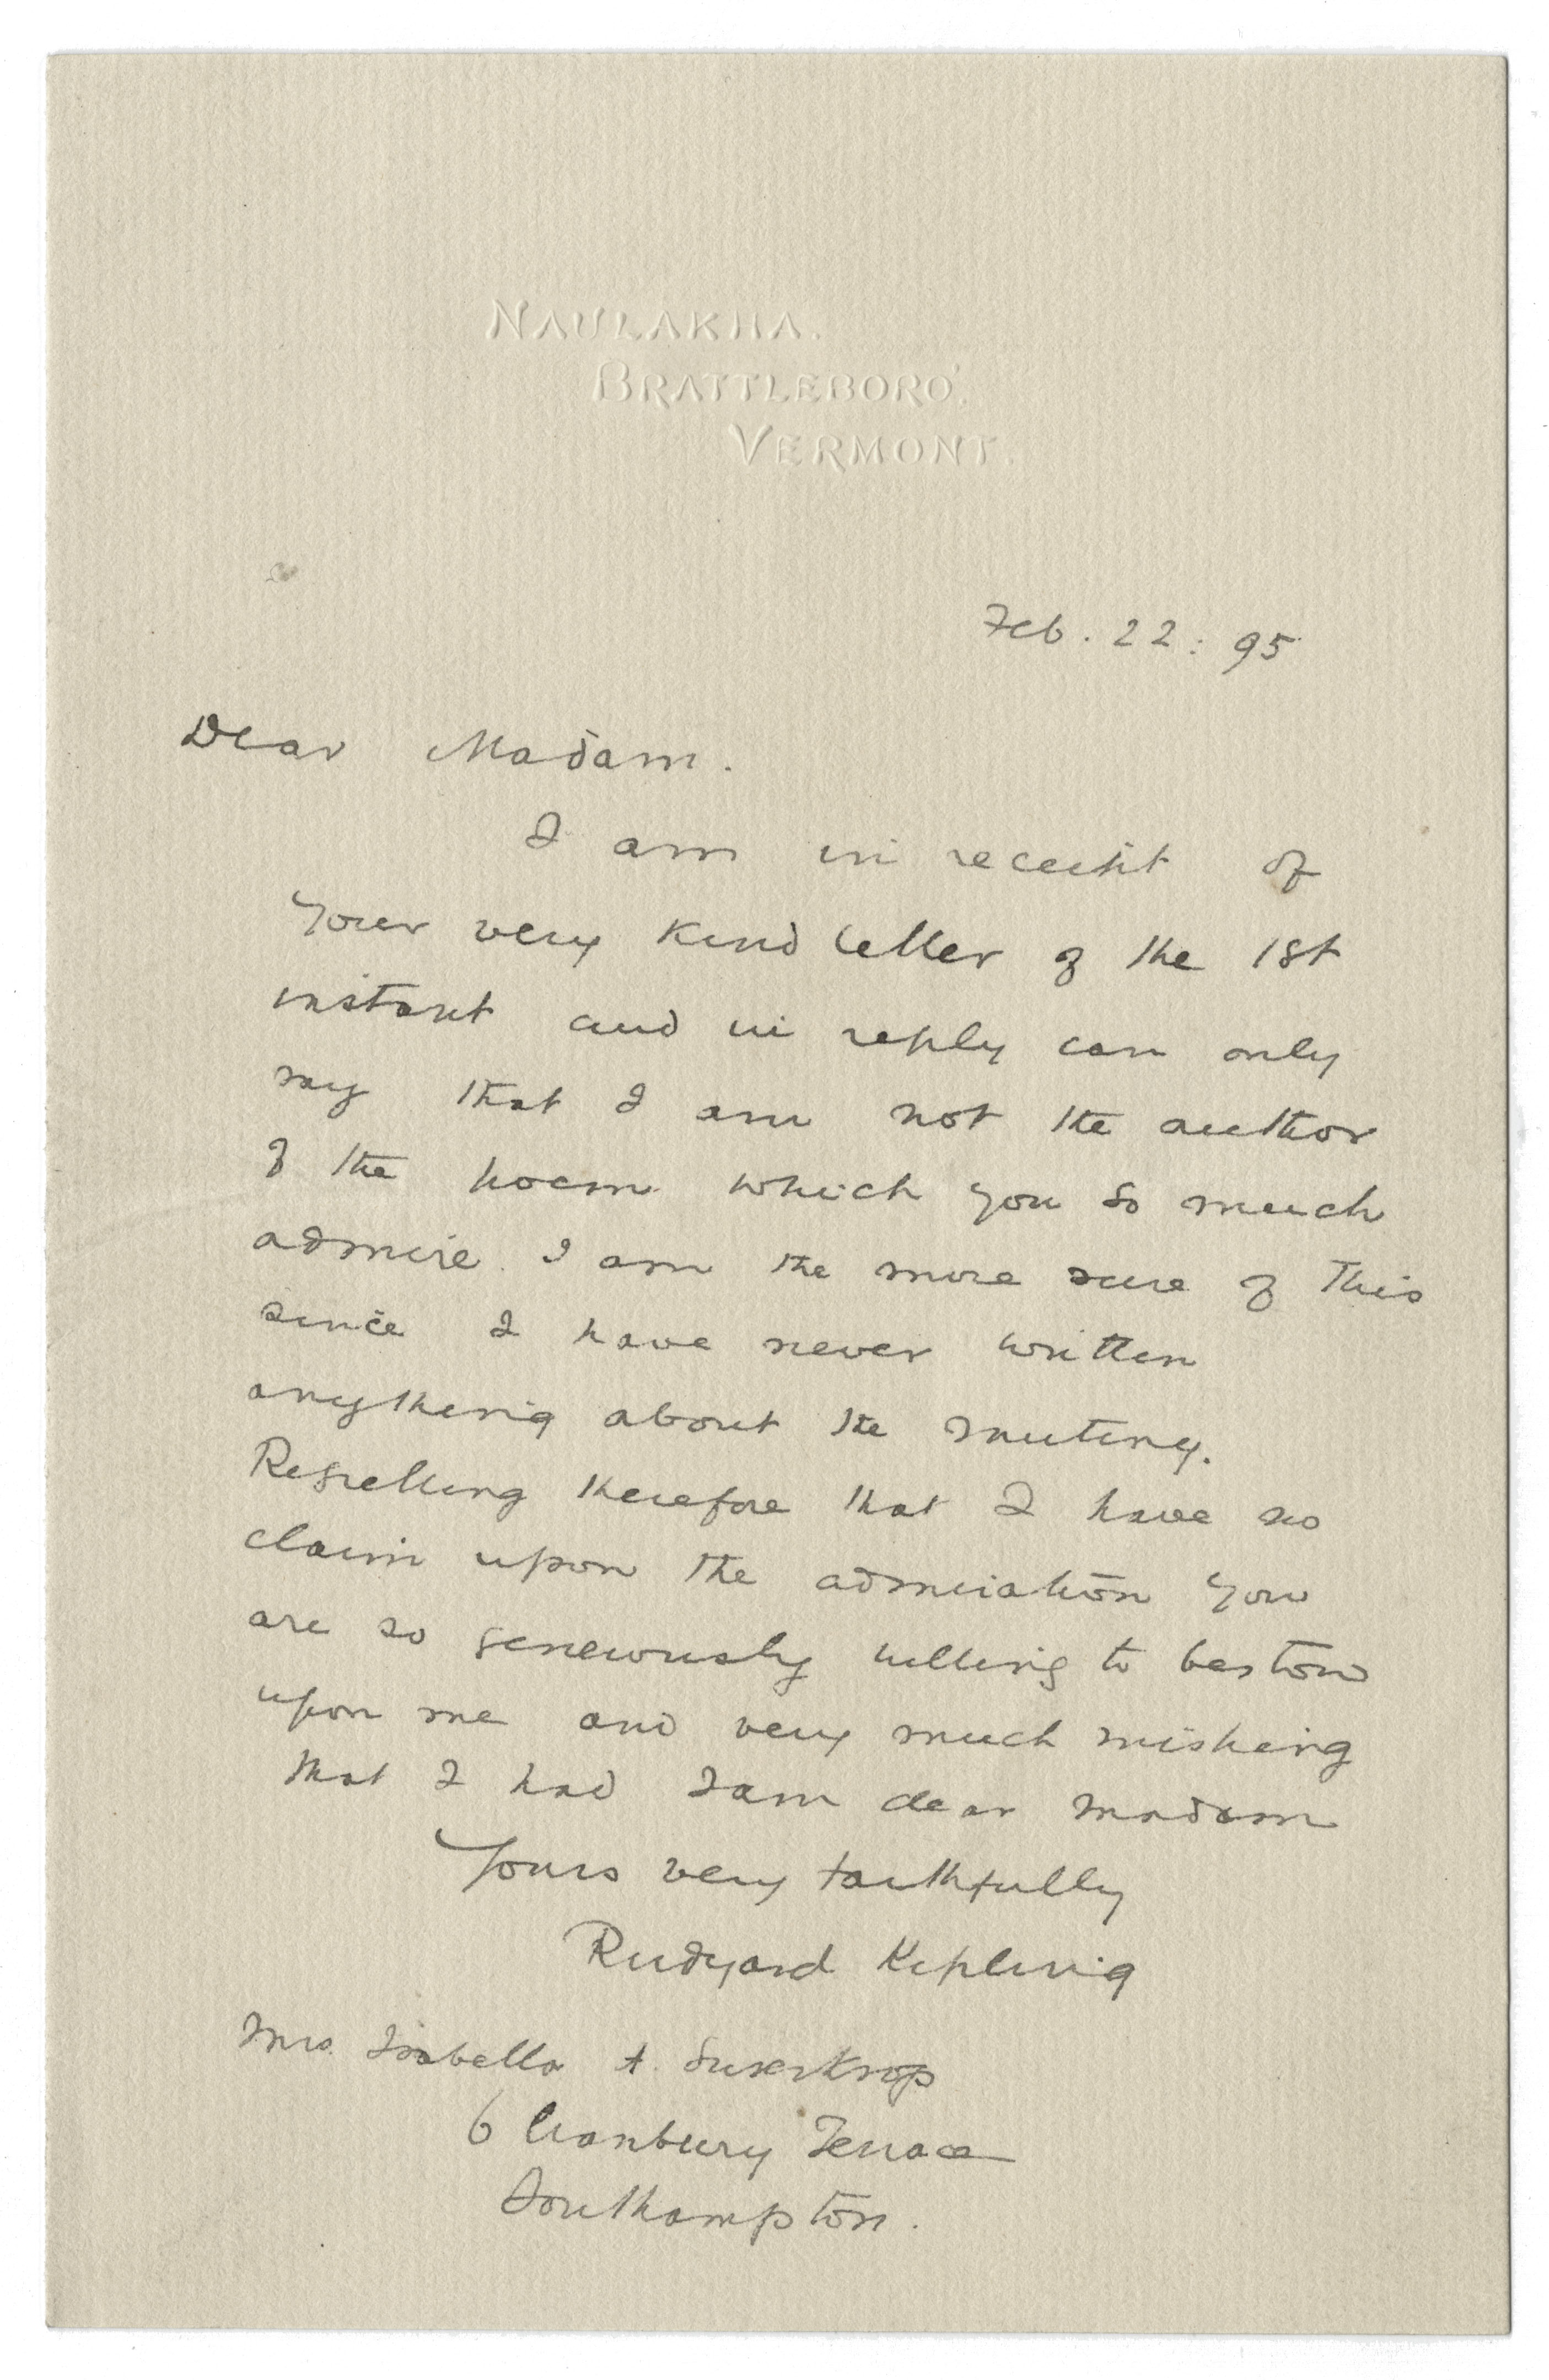 NAULAKHA.
BRATTLEBORO'.
VERMONT.
Feb. 22 : 95
Dear Madam.
I am in receipt of
your very kind letter of the 1st
instant and in reply can only
say that I am not the author
of the poem which you so much
admire. I am the more sure of this
since I have never written
anything about the mutiny.
Regretting therefore that I have no
claim upon the admiration you
are so generously willing to bestow
upon me and very much wishing
that I had I am dear madam
Yours very faithfully
Rudyard Kipling
Mrs. Isabella A.
6 Cranbury Terrace
Southampton.